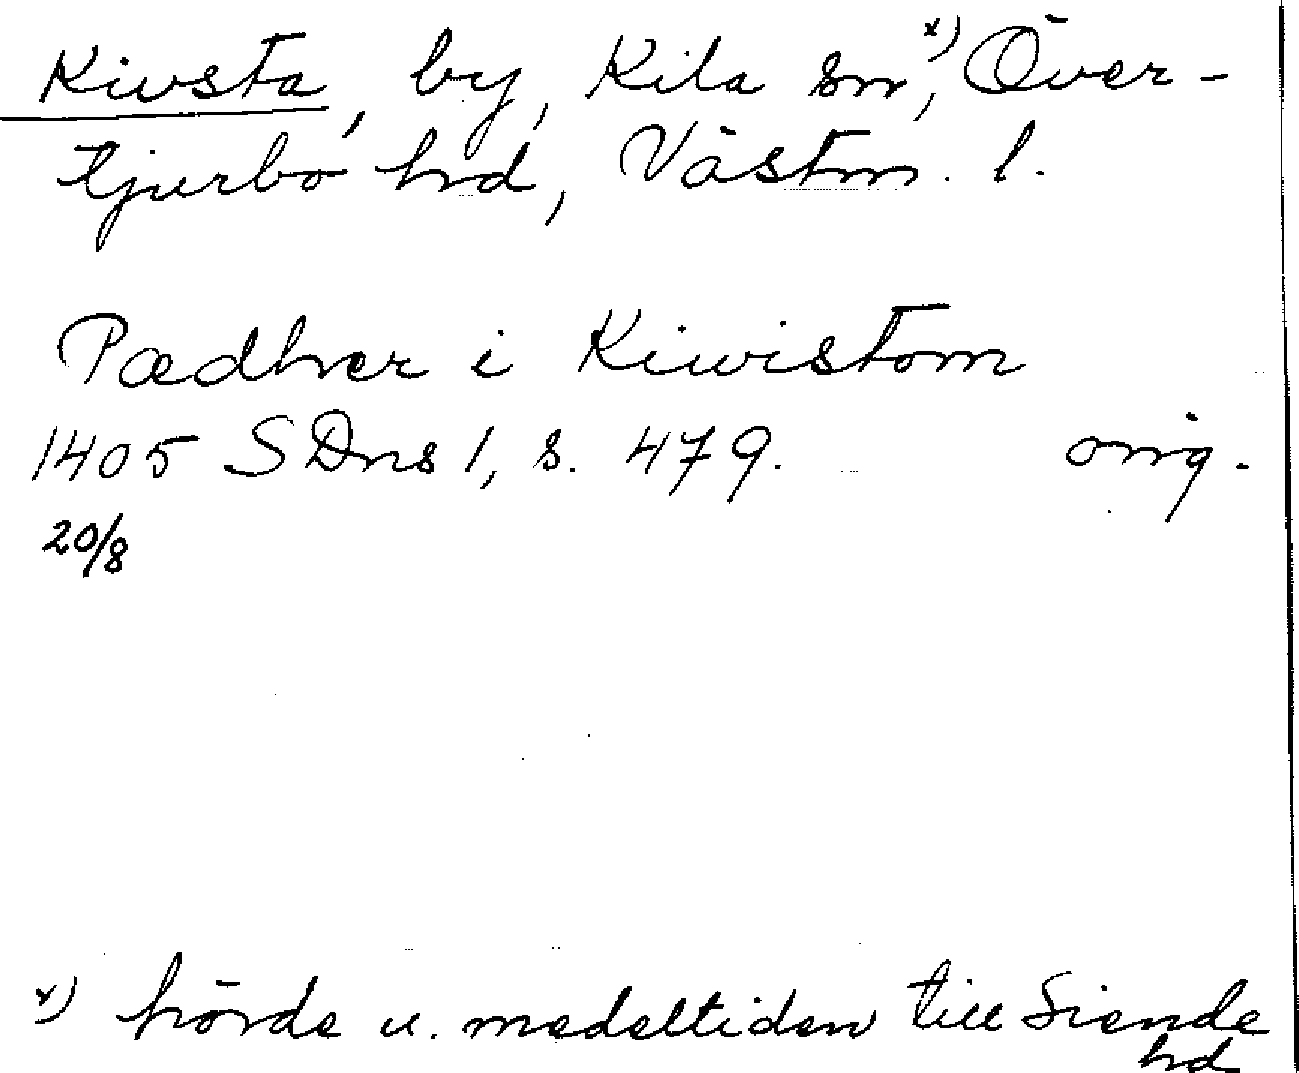 Kivsta, by, Kila sn,x) Över-
tjurbo hrd, Västm. l.
Pædher i Kiwistom
1405 SDns 1, s. 479. orig.
20/8
x) hörde u. medeltiden till Siende
hrd